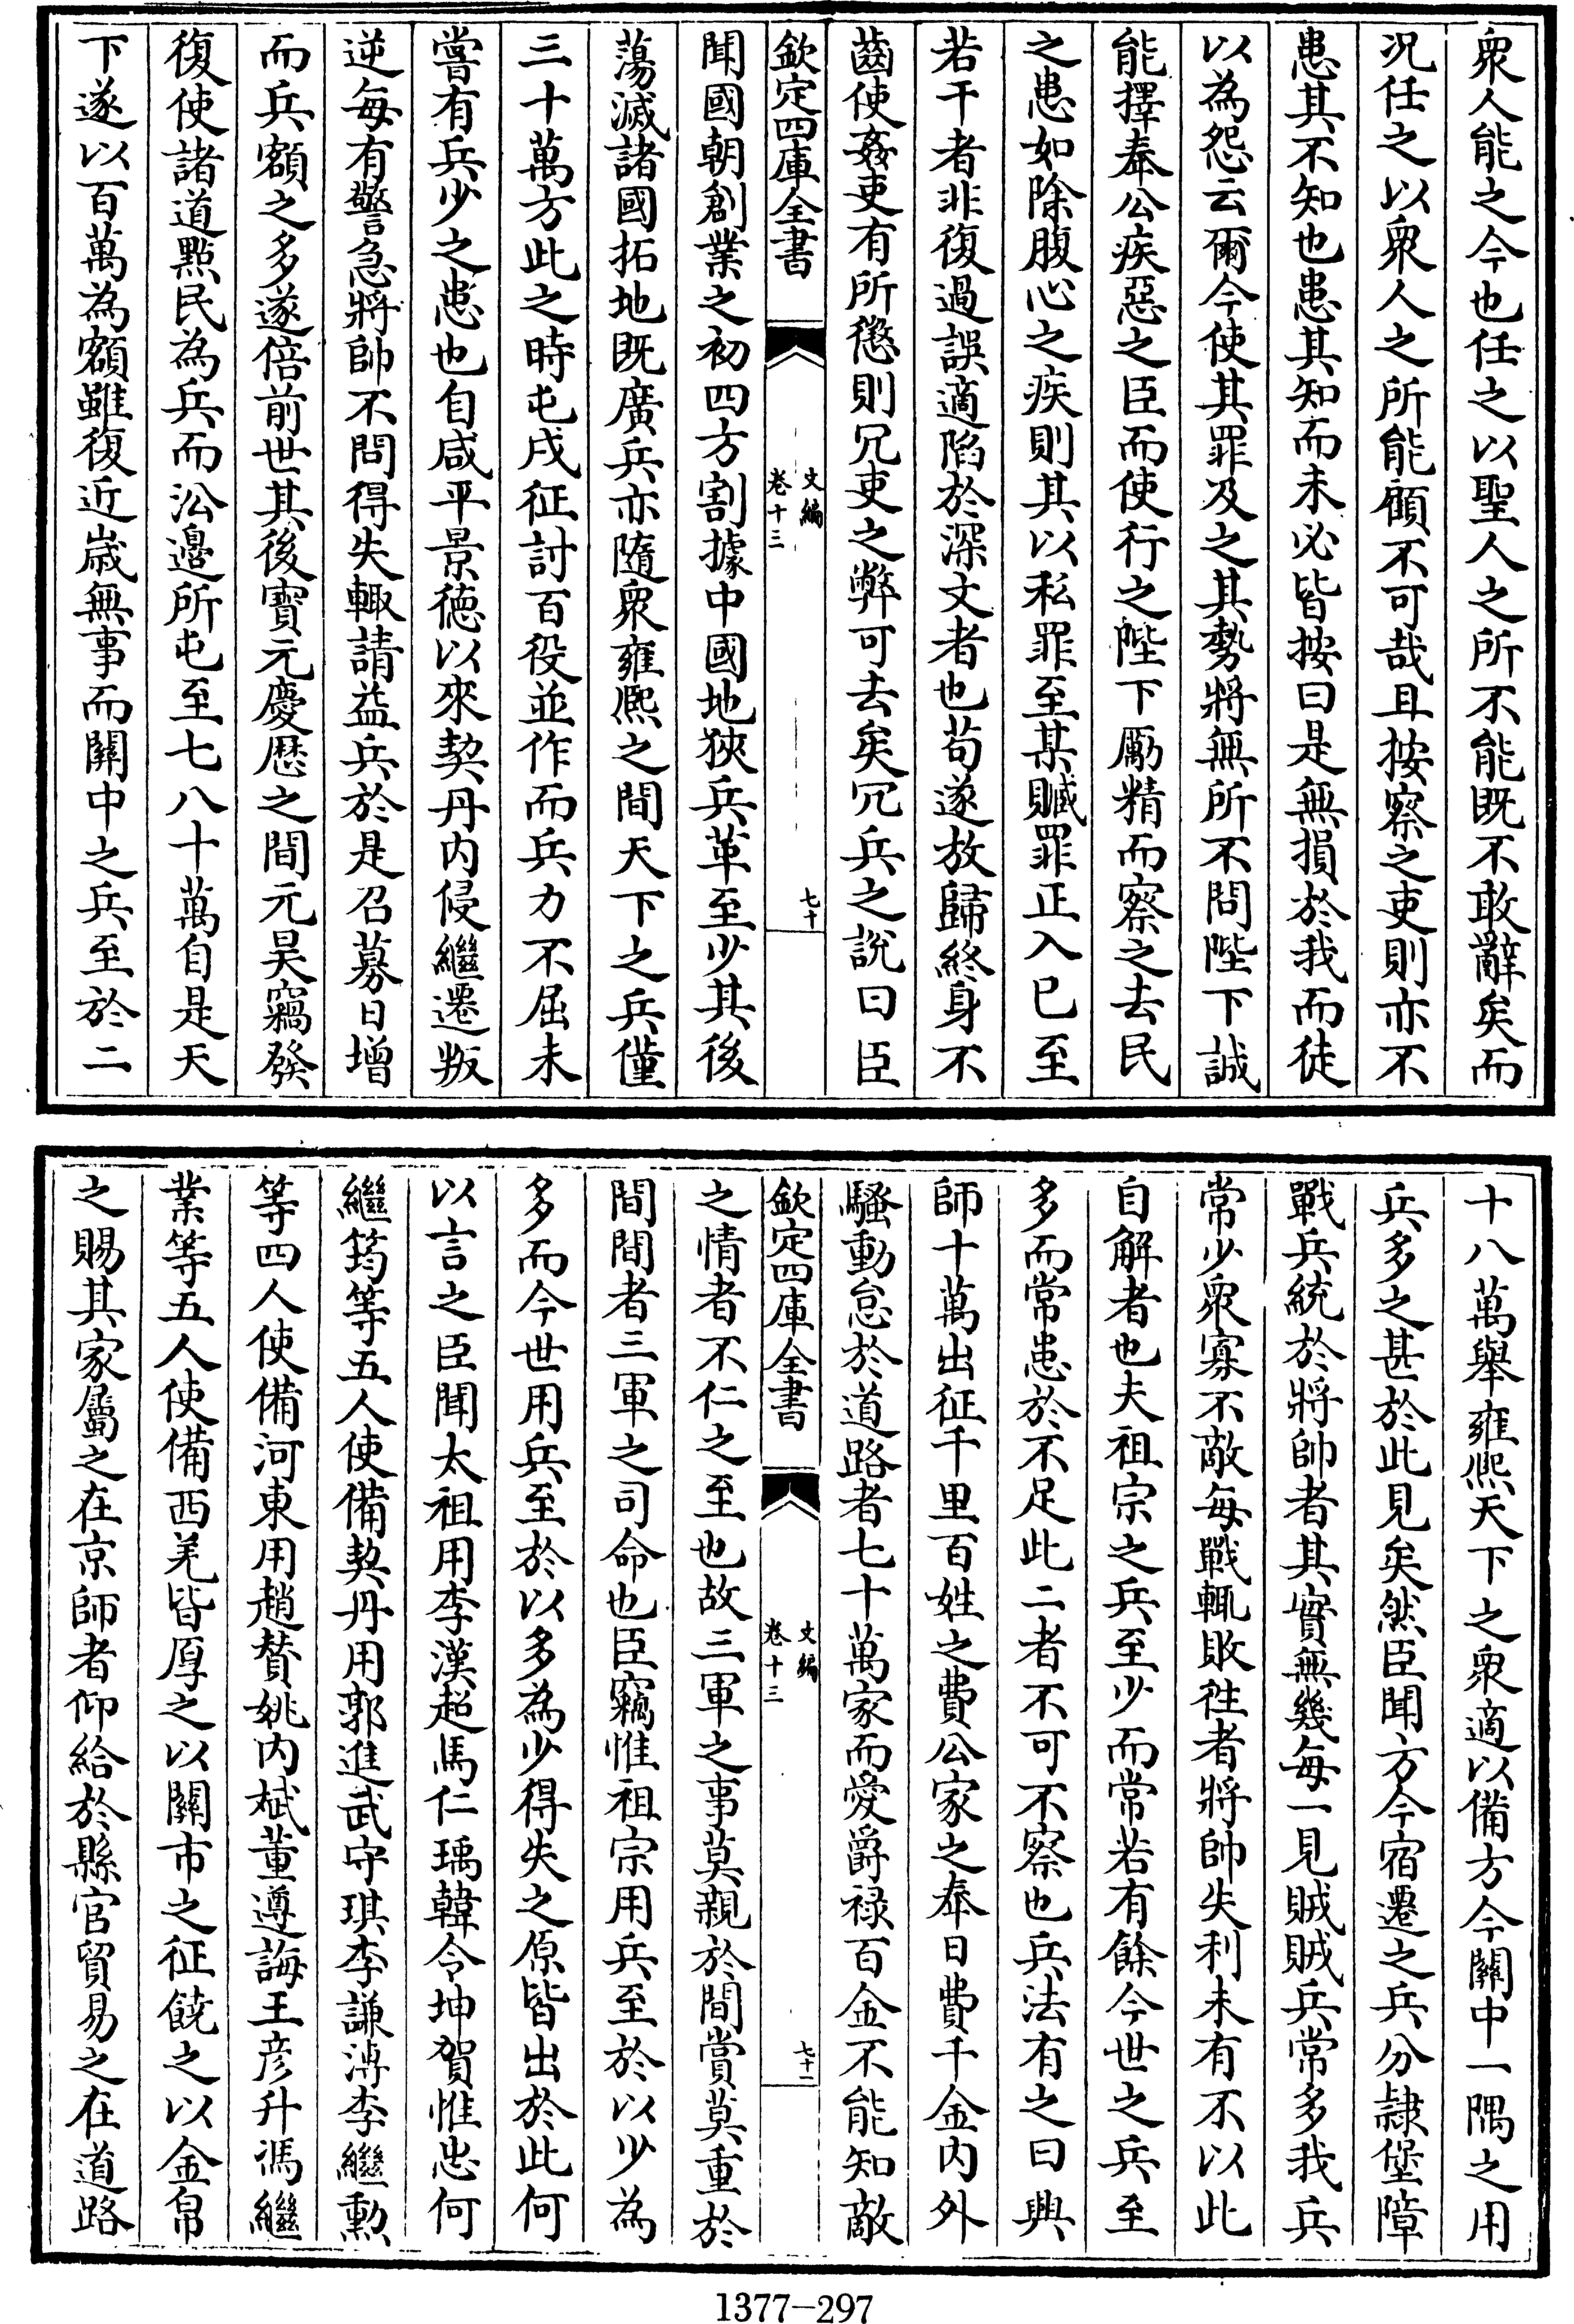 衆人能之今也任之以聖人之所不能既不敢辭矣而
况任之以衆人之所能顧不可哉且按察之吏則亦不
患其不知也患其知而未必皆按曰是無損於我而徒
以為怨云爾今使其罪及之其勢將無所不問陛下誠
能擇奉公疾惡之臣而使行之陛下厲精而察之去民
之患如除腹心之疾則其以私罪至某贓罪正入已至
若干者非復過誤適陷於深文者也苟遂放歸終身不
齒使姦吏有所懲則冗吏之弊可去矣冗兵之說曰臣
欽定四庫全書
文編
卷十三
七十
聞國朝創業之初四方割據中國地狹兵革至少其後
蕩滅諸國拓地既廣兵亦隨衆雍熈之間天下之兵僅
三十萬方此之時屯戍征討百役並作而兵力不屈未
嘗有兵少之患也自咸平景德以來契丹内侵繼遷叛
逆每有警急將帥不問得失輙請益兵於是召募日增
而兵額之多遂倍前世其後寳元慶歴之間元昊竊發
復使諸道㸃民為兵而沿邊所屯至七八十萬自是天
下遂以百萬為額雖復近嵗無事而闗中之兵至於二
十八萬舉雍熈天下之衆適以備方今闗中一隅之用
兵多之甚於此見矣然臣聞方今宿遷之兵分隷堡障
戰兵統於將帥者其實無幾每一見賊賊兵常多我兵
常少衆寡不敵每戰輙敗往者將帥失利未有不以此
自解者也夫祖宗之兵至少而常若有餘今世之兵至
多而常患於不足此二者不可不察也兵法有之曰興
師十萬出征千里百姓之費公家之奉日費千金内外
騷動怠於道路者七十萬家而愛爵禄百金不能知敵
欽定四庫全書
文編
卷十三
七十一
之情者不仁之至也故三軍之事莫親於間賞莫重於
間間者三軍之司命也臣竊惟祖宗用兵至於以少為
多而今世用兵至於以多為少得失之原皆出於此何
以言之臣聞太祖用李漢超馬仁瑀韓令坤賀惟忠何
繼筠等五人使備契丹用郭進武守琪李謙溥李繼勲
等四人使備河東用趙贊姚内斌董遵誨王彦升馮繼
業等五人使備西羌皆厚之以闗市之征饒之以金帛
之賜其家屬之在京師者仰給於縣官貿易之在道路
1377-297